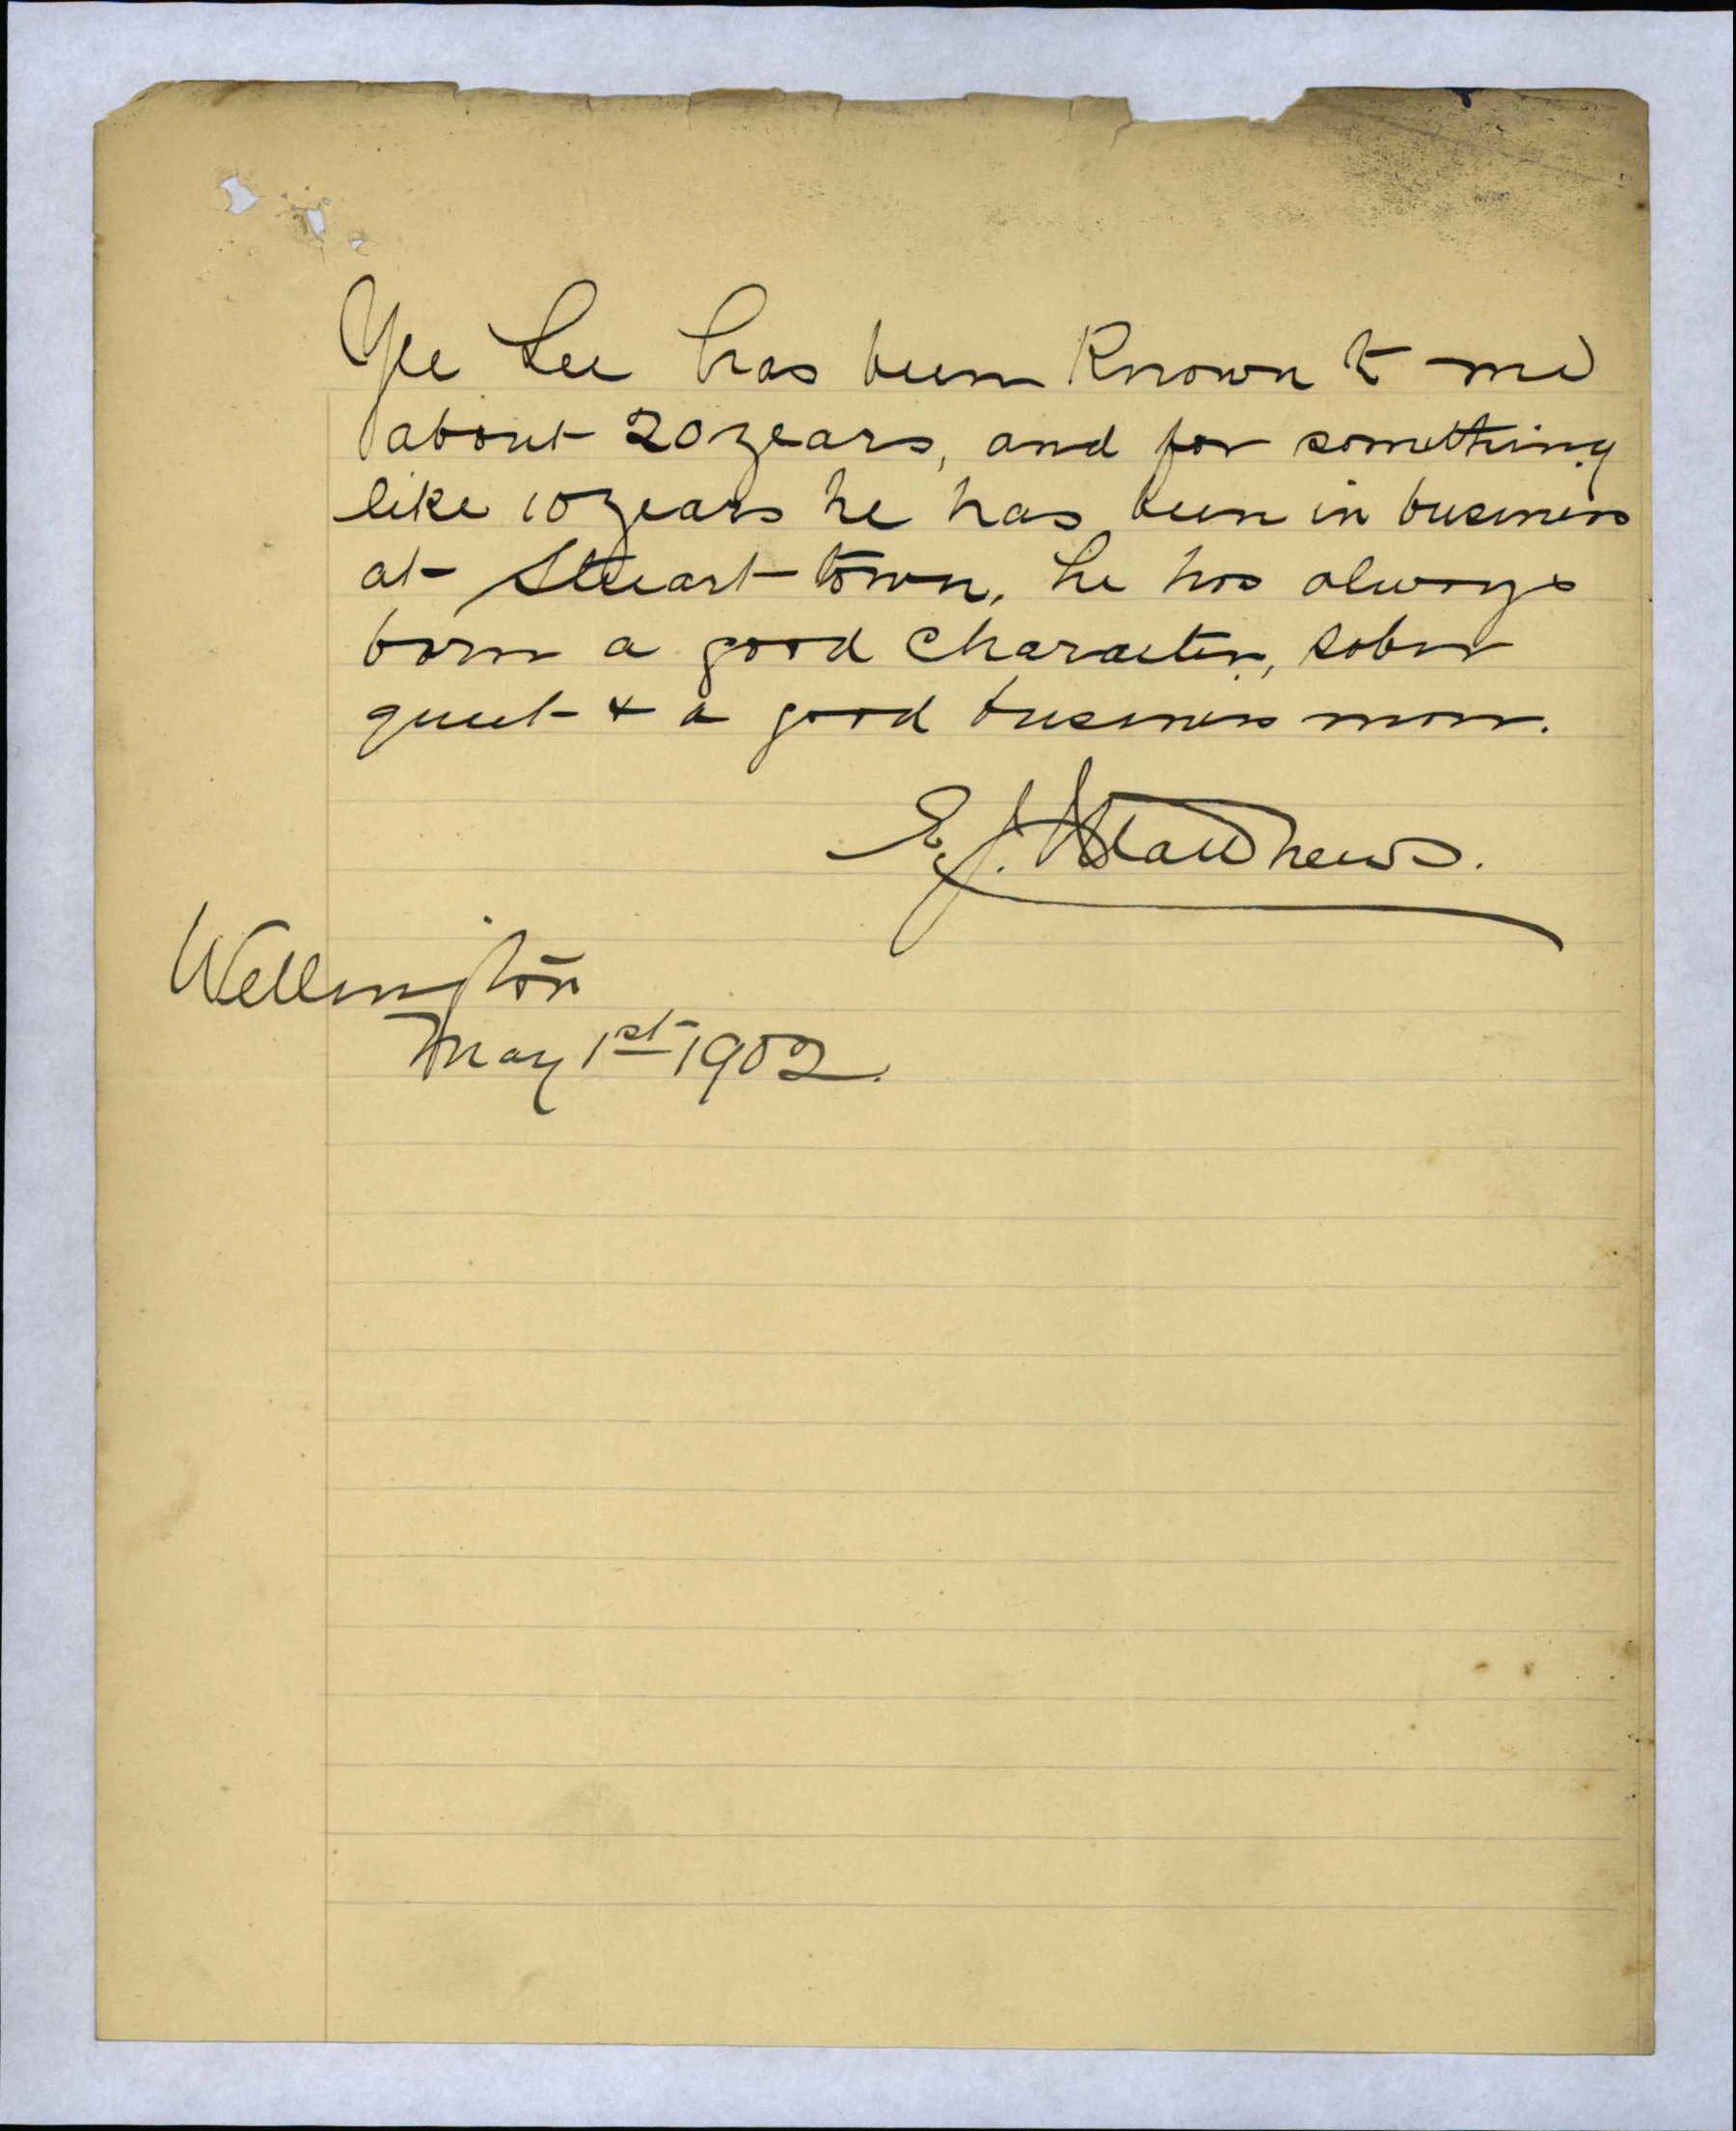 Yee Lee has been known to me
about 20 years, and for something
like 10 years he has been in business
at Stuart town, he has always
born a good character, sober
quiet & a good business man.
E. J. Matthews.
Wellington
May 1st 1902.